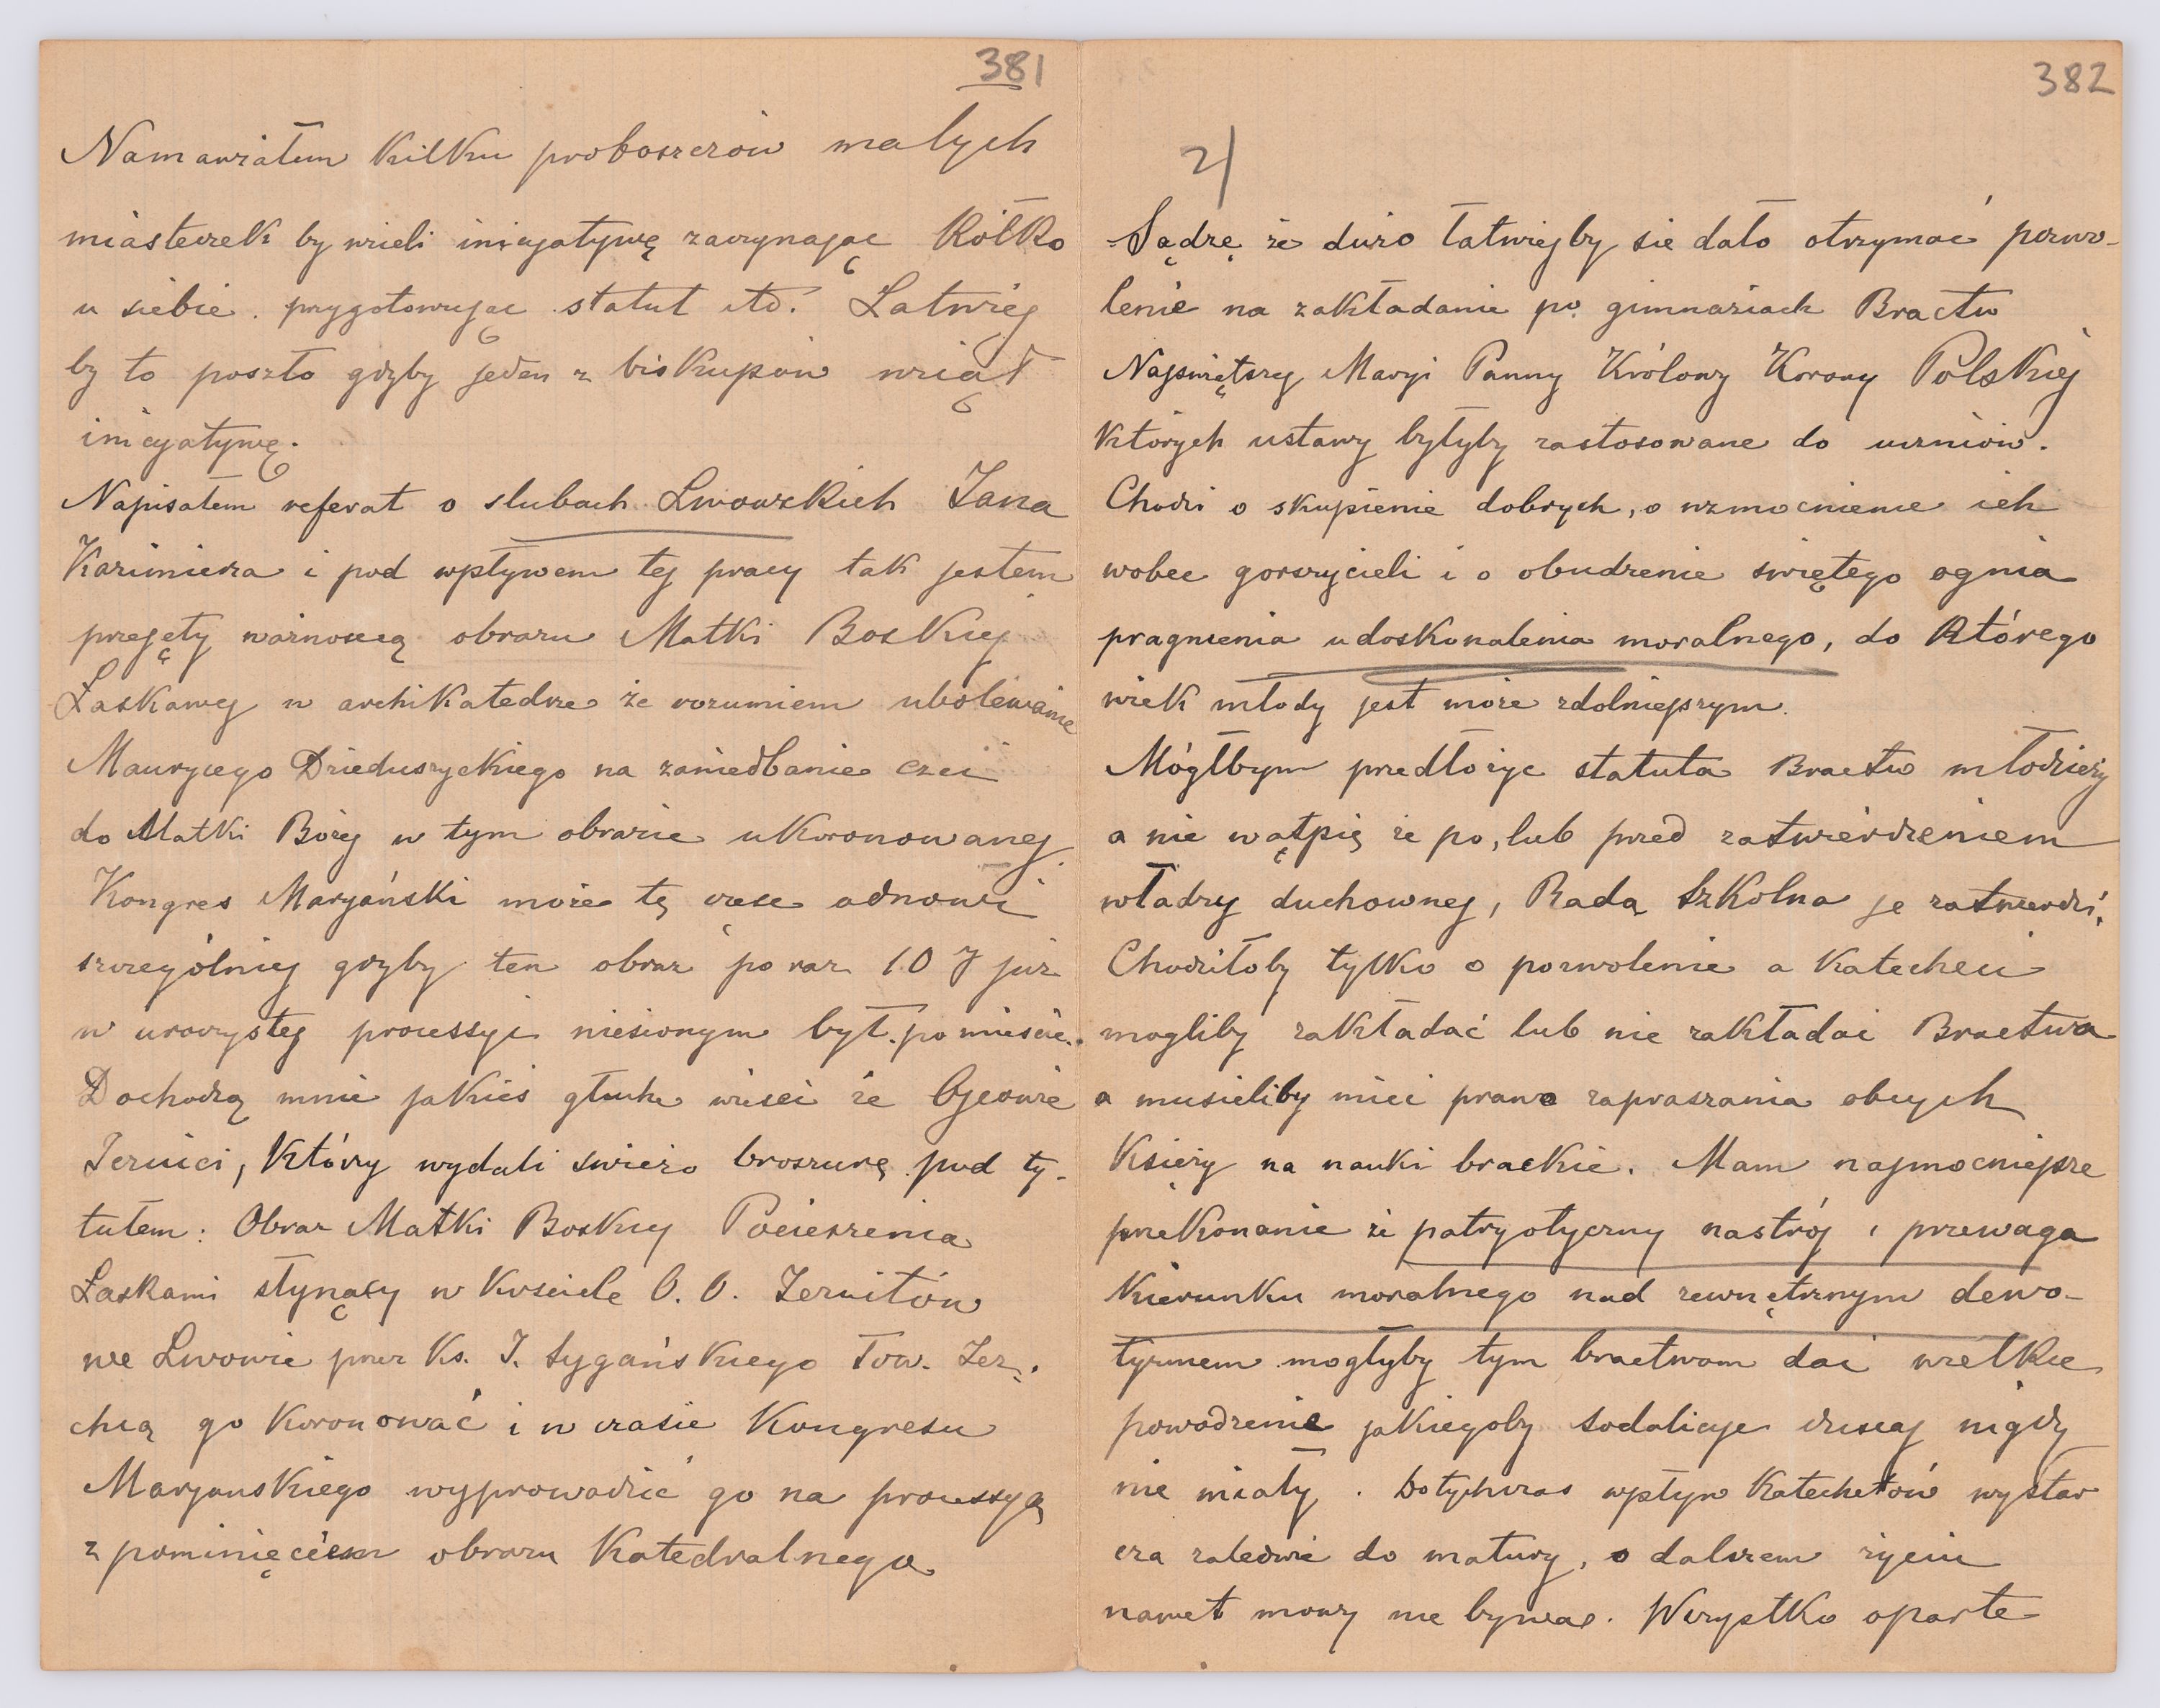 381
Namawiałem kilku proboszczów małych
miasteczek by wzieli inicyatywę zaczynając Kółko
u siebie. przygotowując statut itd. Łatwiej
by to poszło gdyby jeden z biskupów wziął
inicyatywę.
Napisałem referat o slubach Lwowskich Jana
Kazimierza i pod wpływem tej pracy tak jestem
przejęty ważnością obrazu Matki Boskiej
Łaskawej w archikatedrze że rozumiem ubolewanie
Maurycego Dzieduszyckiego na zaniedbanie czci
do Matki Bożej w tym obrazie ukoronowanej.
Kongres Maryański może tę cześć odnowi
szczególniej gdyby ten obraz po raz 10 y już
w uroczystej processyi niesionym był po miescie.
Dochodzą mnie jakieś głuche wiesci że Ojcowie
Jezuici, którzy wydali swieżo broszurę pod ty-
tułem: Obraz Matki Boskiej Pocieszenia
Łaskami słynący w Kościele O. O. Jezuitów
we Lwowie przez Ks. J. Sygańskiego Tow. Jez.
chcą go koronować i w czasie Kongresu
Maryanskiego wyprowadzić go na processyą
z pominięciem obrazu Katedralnego
382
2/
Sądzę że dużo łatwiejby sie dało otrzymać pozwo-
lenie na zakładanie po gimnaziach Bractw
Najswiętszej Maryi Panny Królowy Korony Polskiej
których ustawy byłyby zastosowane do uczniów.
Chodzi o skupienie dobrych, o wzmocnienie ich
wobec gorszycieli i o obudzenie swiętego ognia
pragnienia udoskonalenia moralnego, do którego
wiek młody jest może zdolniejszym.
Mógłbym predłożyc statuta Bractw młodzieży
a nie wątpię że po, lub przed zatwierdzeniem
władzy duchownej, Rada Szkolna je zatwierdzi.
Chodziłoby tylko o pozwolenie a Katecheci
mogliby zakładać lub nie zakładać Bractwa
a musieliby mieć prawo zapraszania obcych
Księży na nauki brackie. Mam najmocniejsze
przekonanie że patryotyczny nastrój i przewaga
kierunku moralnego nad zewnętrznym dewo-
tyzmem mogłyby tym bractwom dać wielkie
powodzenie jakiegoby Sodalicye dzisiaj nigdy
nie miały. Dotychczas wpływ Katechetów wystar
cza zaledwie do matury, o dalszem życiu
nawet mowy nie bywa. Wszystko oparte